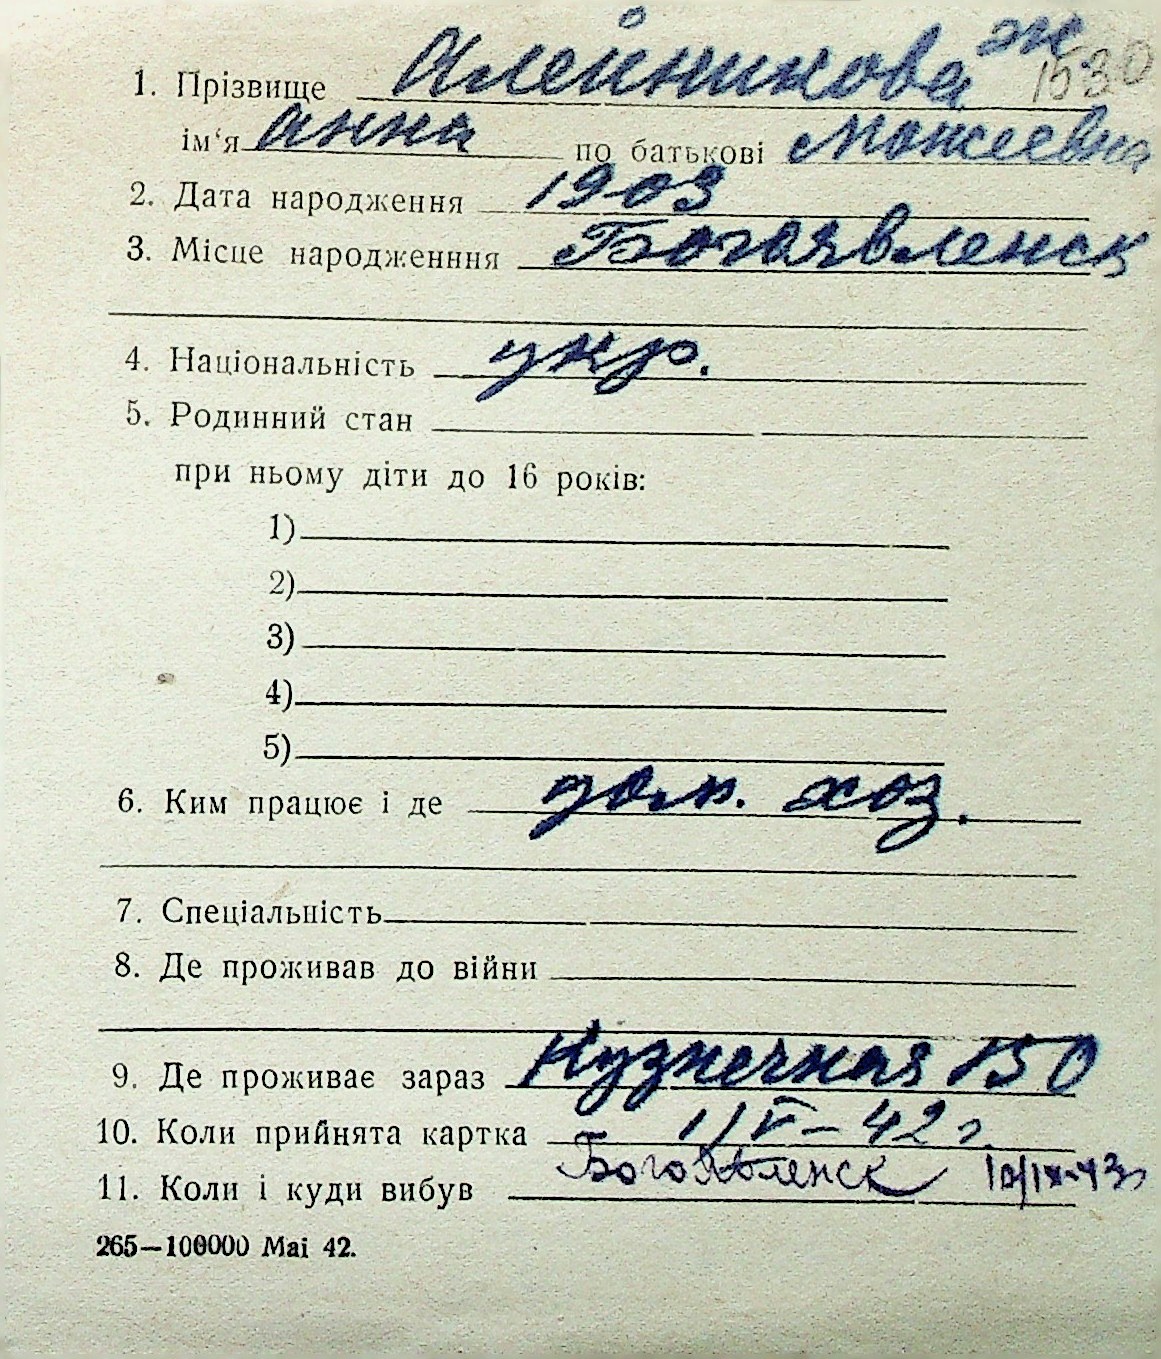 1. Прізвище Алейникова ж 1530
ім'я Анна по батьковіМожеевна
2. Дата народження 1903
3. Місце народженння Богоявленск
4. Національність укр.
5. Родинний стан
при ньому діти до 16 років:
1)
2)
3)
4)
5)
6. Ким працює і де дом. хоз.
7. Спеціальність
8. Де проживав до війни
9. Де проживає зараз Кузнечная 150
10. Коли прийнята картка 1/V – 42 г.
11. Коли і куди вибув Богоявленск 10/IX-43
265—100000 Mai 42.